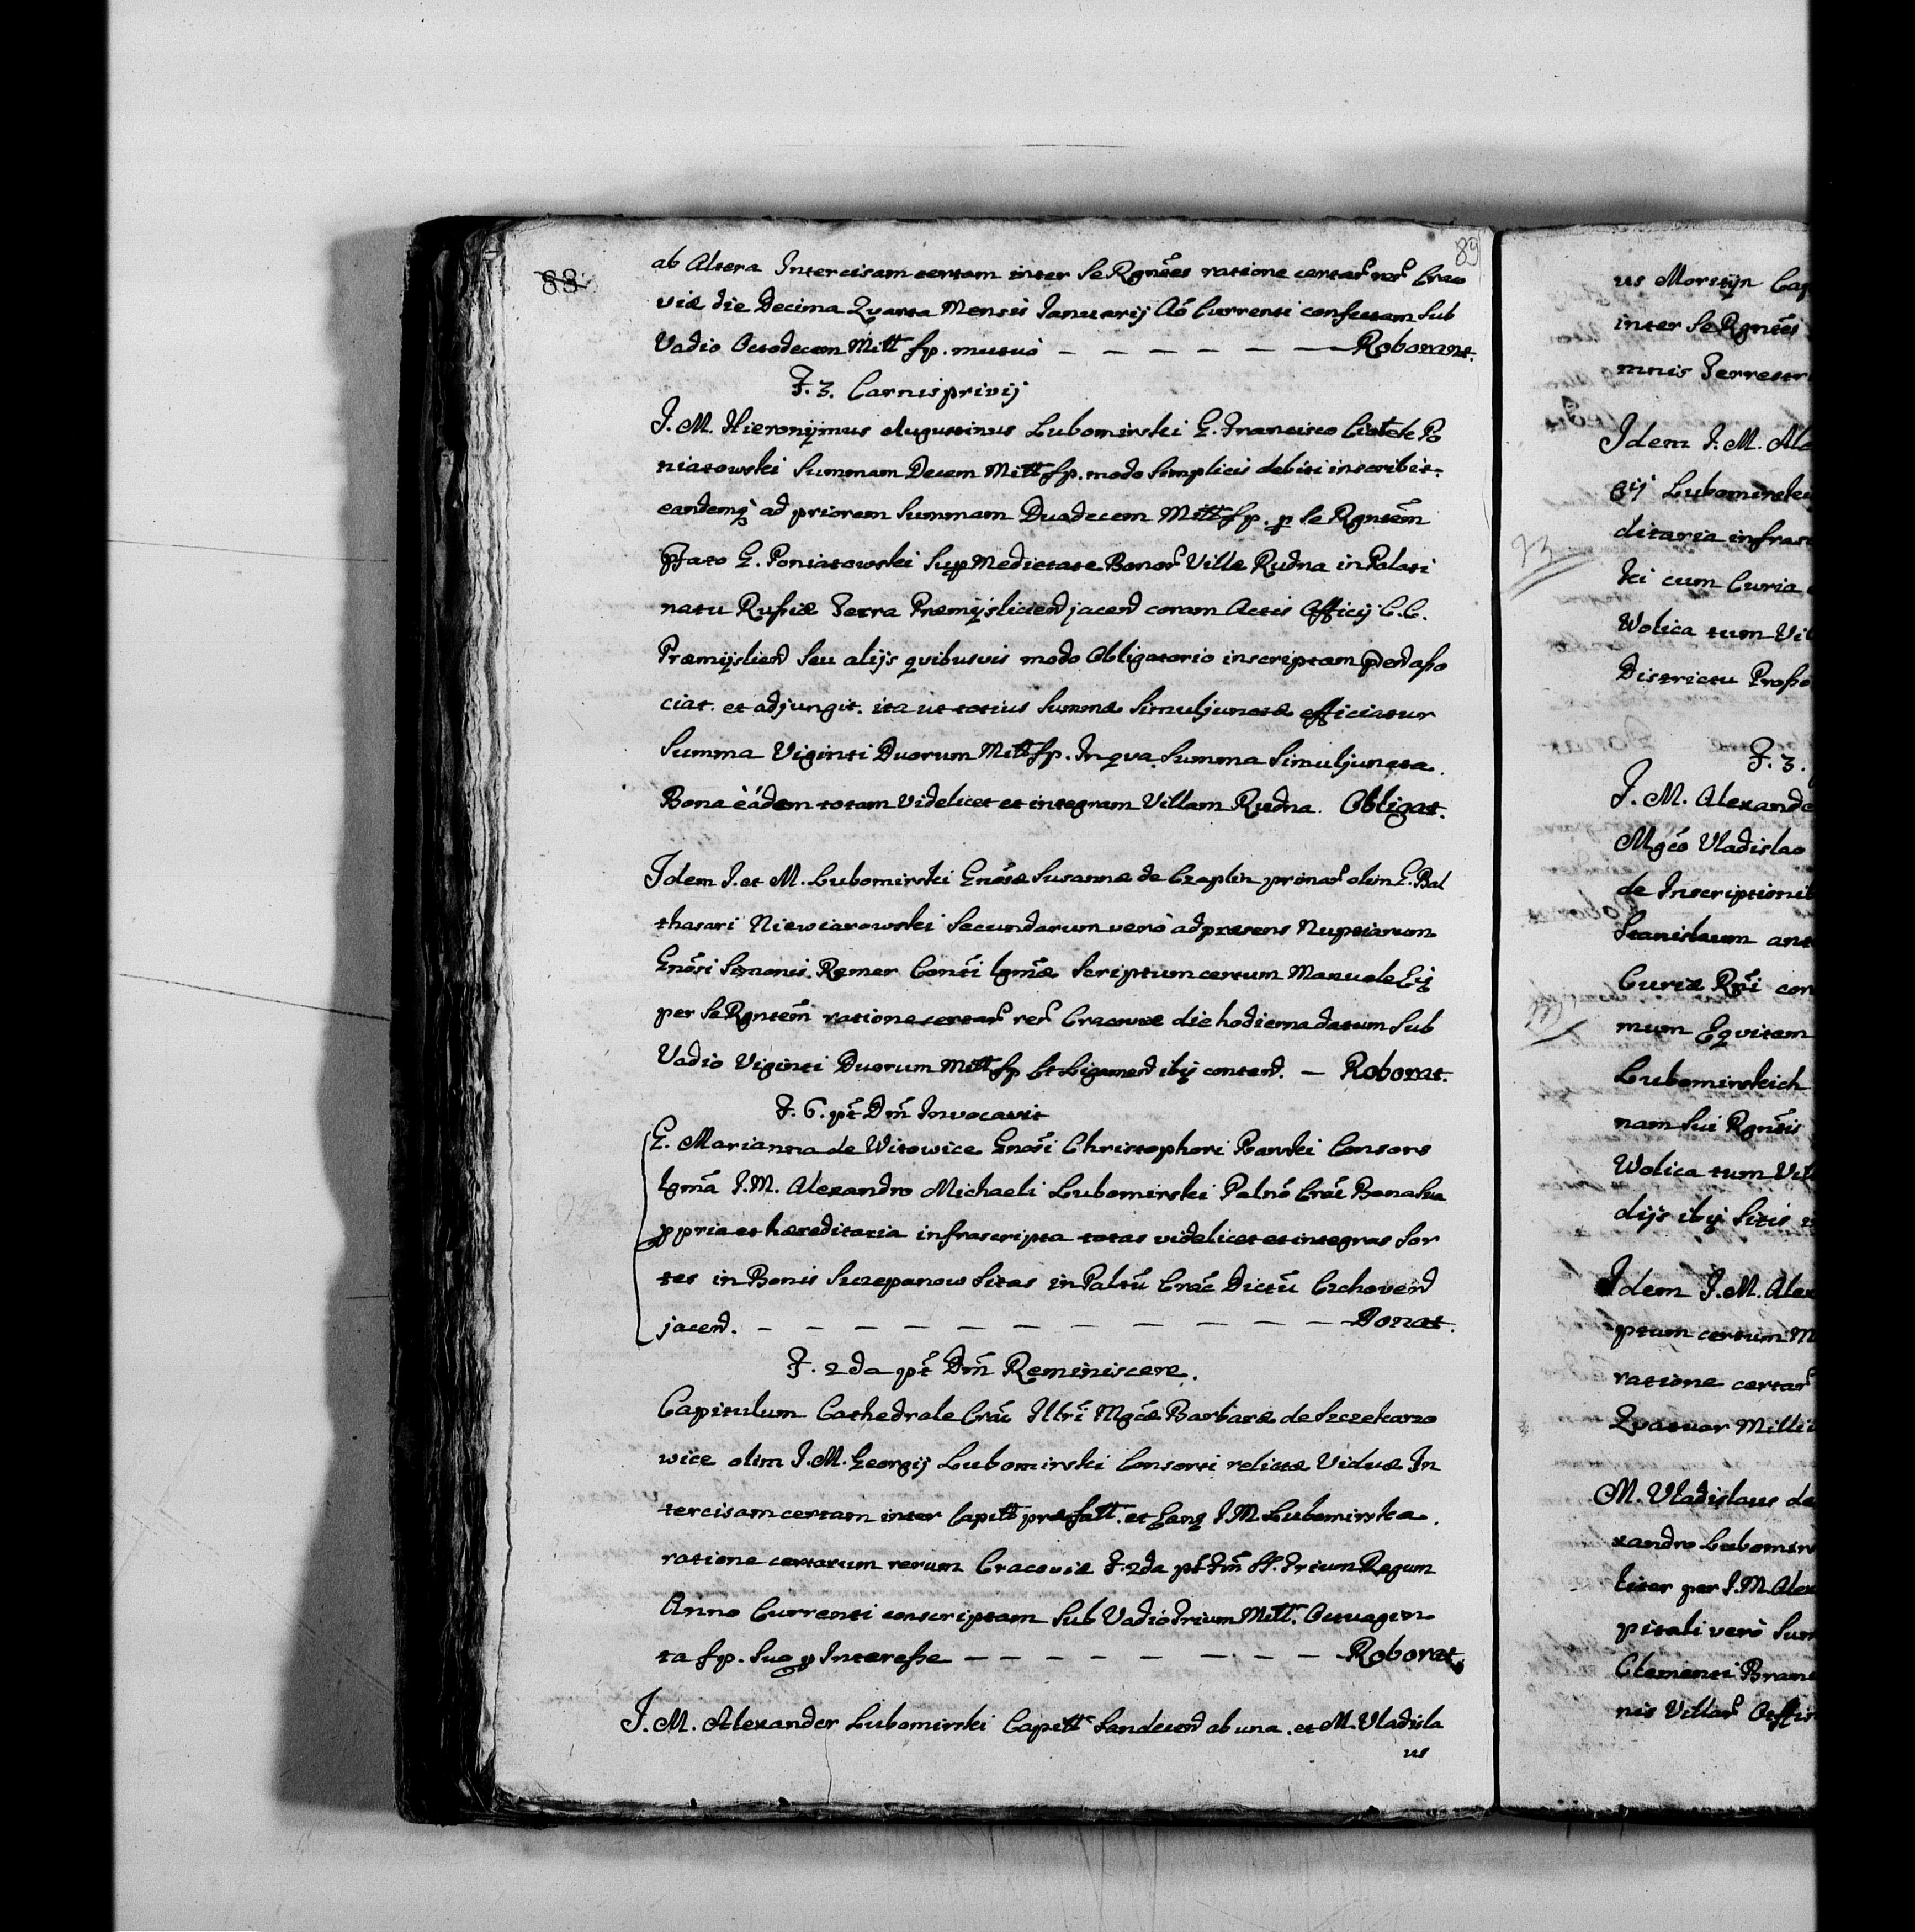 89
88
ab Altera Intercisam certam inter Se Rgnt̃es ratione certar̃ rer̃ Craco
viæ die Decima Qvarta Mensis Ianuarij Aõ Currenti confectam Sub
Vadio Octodecem Mill fp. mutuò — — — — — — Roborant.
F. 3. Carnisprivij
I. M. Hieronÿmus Augustinus Lubomirski G. Francisco Ciołek Po
niatowski Summam Decem Mill fp. modo Simplicis debiti inscribit.
eandemq̃ ad priorem Summam Duodecem Mill fp. p Se Rgntem̃
pfato G. Poniatowski Sup Medietate Bonor̃ Villæ Rudna in Palati
natu Rußiæ Terra Præmÿslicien̄ jacen̄ coram Actis Officij C. C.
Præmÿslien̄ Seu alijs qvibusvis modo Obligatorio inscriptam p̃en̄ aßo
ciat. et adjungit. ita ut totius Summæ Simuljunctæ efficiatur
Summa Viginti Duorum Mill fp. In qva Summa Simuljuncta.
Bona eádem totam videlicet et integram Villam Rudna. Obligat.
Idem I. et M. Lubomirski Gnõsæ Susannæ de Czaplin primar̃ olim G. Bal
thasari Niewiarowski Secundarum verò ad præsens Nuptiarum
Gnõsi Simonis Remer Consr̃i lgm̃æ Scriptum certum Manuale Eiq
per Se Rgntem̃ ratione certar̃ rer̃ Cracoviæ die hodierna datum Sub
Vadio Viginti Duorum Mill fp Et Ligamen̄ ibq̃ conten̄. — Roborat.
F. 6. pt̃ Dm̃ Invocavit
G. Marianna de Witowice Gnõsi Christophori Banski Consors
lgm̃a I. M. Alexandro Michaeli Lubomirski Palnõ Crãc Bona Sua
ppria et hæreditaria infrascripta totas videlicet et integras Sor
tes in Bonis Szczepanow Sitas in Paltũ Crãc Dictũ Czchovien̄
jacen̄. — — — — — — — — — — — Donat.
F. 2da pt̃ Dm̃ Reminiscere.
Capitulum Cathedrale Crãc Illtr̃i Mgc̃æ Barbaræ de Szczekarzo
wice olim I. M. Georgij Lubomirski Consorti relictæ Viduæ In
tercisam certam inter Capitl præfatt. et Eanq I M. Lubomirska.
ratione certarum rerum Cracoviæ F. 2da pt̃ Fm̃ SS. Trium Regum
Anno Currenti conscriptam Sub Vadio Trium Mill. Octuagin
ta fp. Suo p Intereße — — — — — — — — Roborat.
I. M. Alexander Lubomirski Capitt Sandecen̄ ab una. et M. Vladisla
us
us Morstÿn Cap
inter Se Rgnt̃es
mnis Terrestr
Idem I. M. Ale
gij Lubomirski
ditaria infras
ki cum Curia
Wolica tum Vil
Districtu Proßo
F. 3.
I. M. Alexand
Mgc̃o Vladislao
de Inscriptionib
Stanislaum ant
Curiæ Rñi con
mum Eqvitem
Lubomirskich
nam Sui Rgnt̃is
Wolica tum Vil
dijs ibq̃ Sitis
Idem I. M. Alex
ptum certum M
ratione certar̃
Qvatuor Milli
M. Vladislaus de
xandro Lubomir
liter per I. M. Alex
pitali verò Sum
Clementi Brani
nis Villar̃